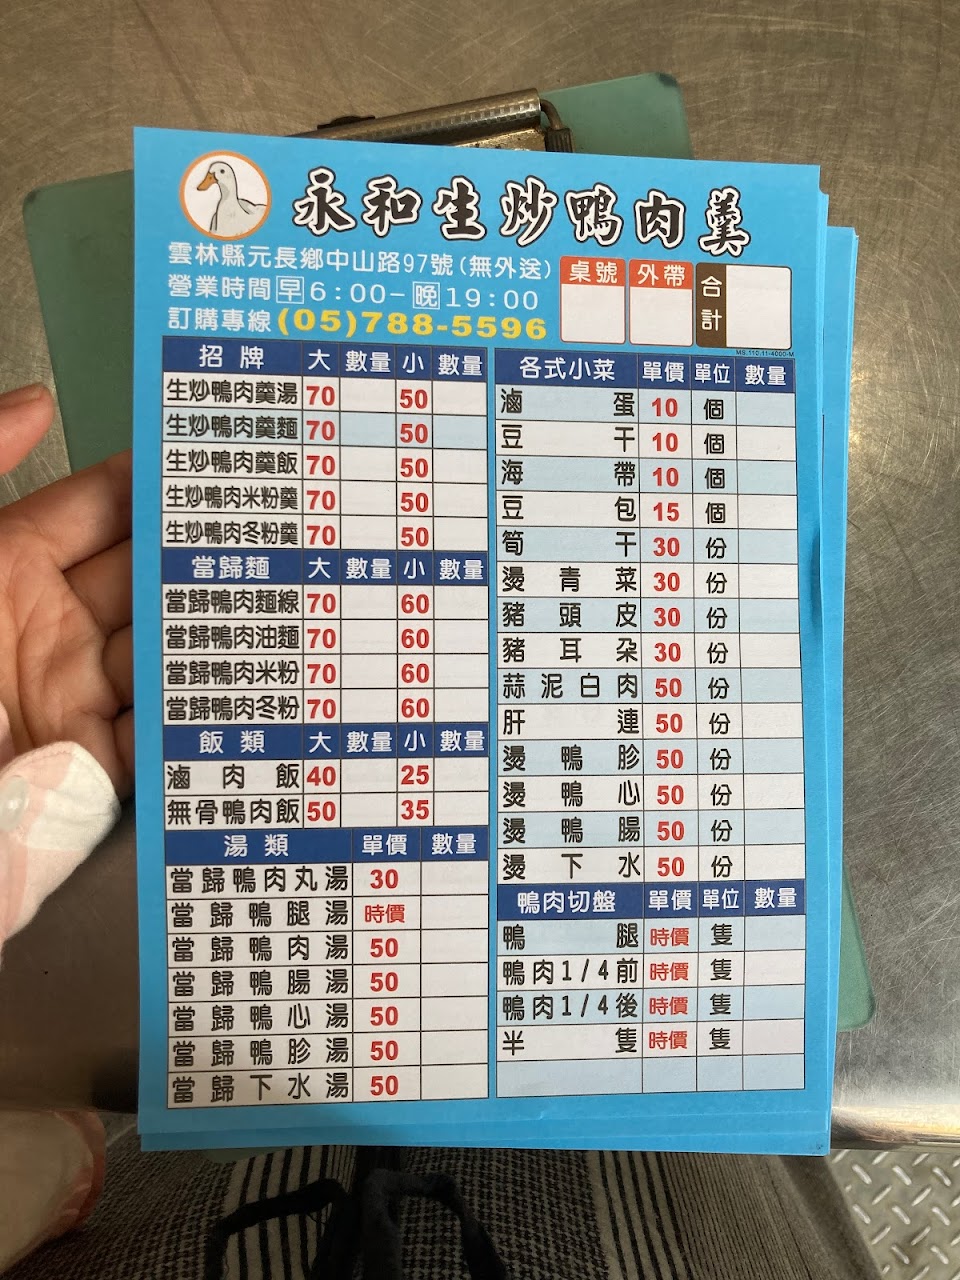 永和生炒鴨肉羹
雲林縣元長鄉中山路97號(無外送)
營業時間早6:00-晚19:00
訂購專線(05)788-5596
桌號 外帶 合計
MS.110.11-4000-M
招牌 大 數量 小 數量
生炒鴨肉羹湯 70 50
生炒鴨肉羹麵 70 50
生炒鴨肉羹飯 70 50
生炒鴨肉米粉羹 70 50
生炒鴨肉冬粉羹 70 50
當歸麵 大 數量 小 數量
當歸鴨肉麵線 70 60
當歸鴨肉油麵 70 60
當歸鴨肉米粉 70 60
當歸鴨肉冬粉 70 60
飯類 大 數量 小 數量
滷肉飯 40 25
無骨鴨肉飯 50 35
湯類 單價 數量
當歸鴨肉丸湯 30
當歸鴨腿湯 時價
當歸鴨肉湯 50
當歸鴨腸湯 50
當歸鴨心湯 50
當歸鴨胗湯 50
當歸下水湯 50
各式小菜 單價 單位 數量
滷蛋 10 個
豆干 10 個
海帶 10 個
豆包 15 個
筍干 30 份
燙青菜 30 份
豬頭皮 30 份
豬耳朵 30 份
蒜泥白肉 50 份
肝連 50 份
燙鴨胗 50 份
燙鴨心 50 份
燙鴨腸 50 份
燙下水 50 份
鴨肉切盤 單價 單位 數量
鴨腿 時價 隻
鴨肉1/4前 時價 隻
鴨肉1/4後 時價 隻
半隻 時價 隻